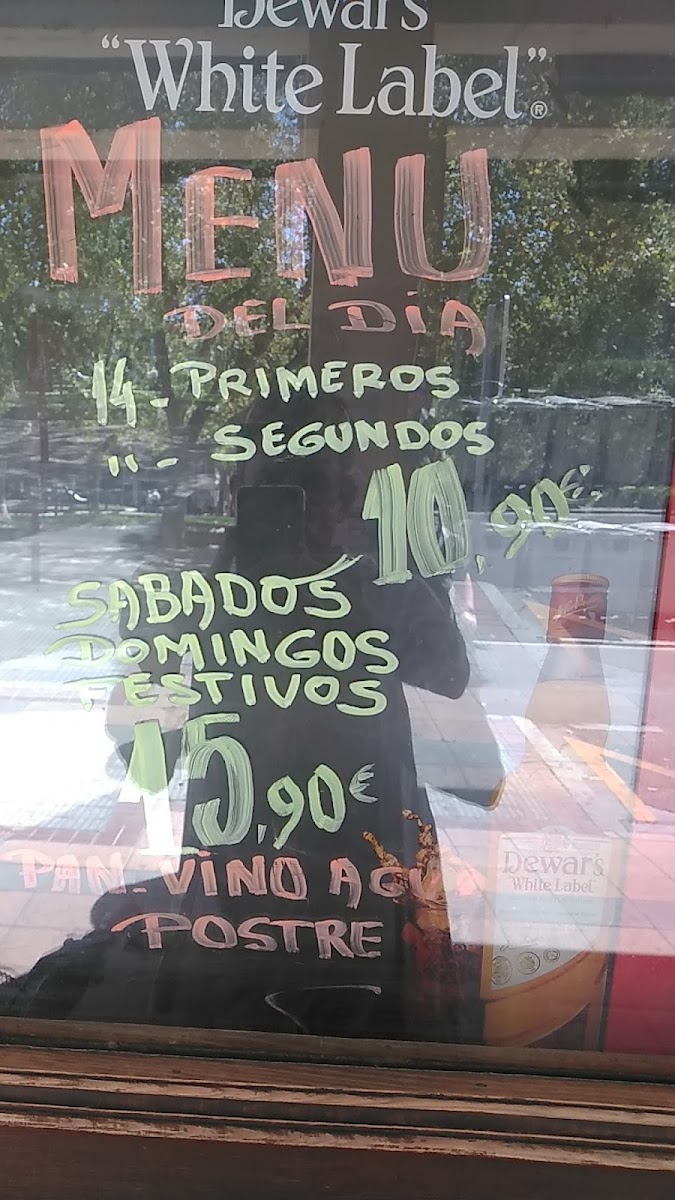 Dewar's
"White Label"®
MENU
DEL DIA
14 - PRIMEROS
" - SEGUNDOS
10,90€
SABADOS
DOMINGOS
FESTIVOS
15,90€
PAN - VINO AGUA
POSTRE
Dewar's
White Label